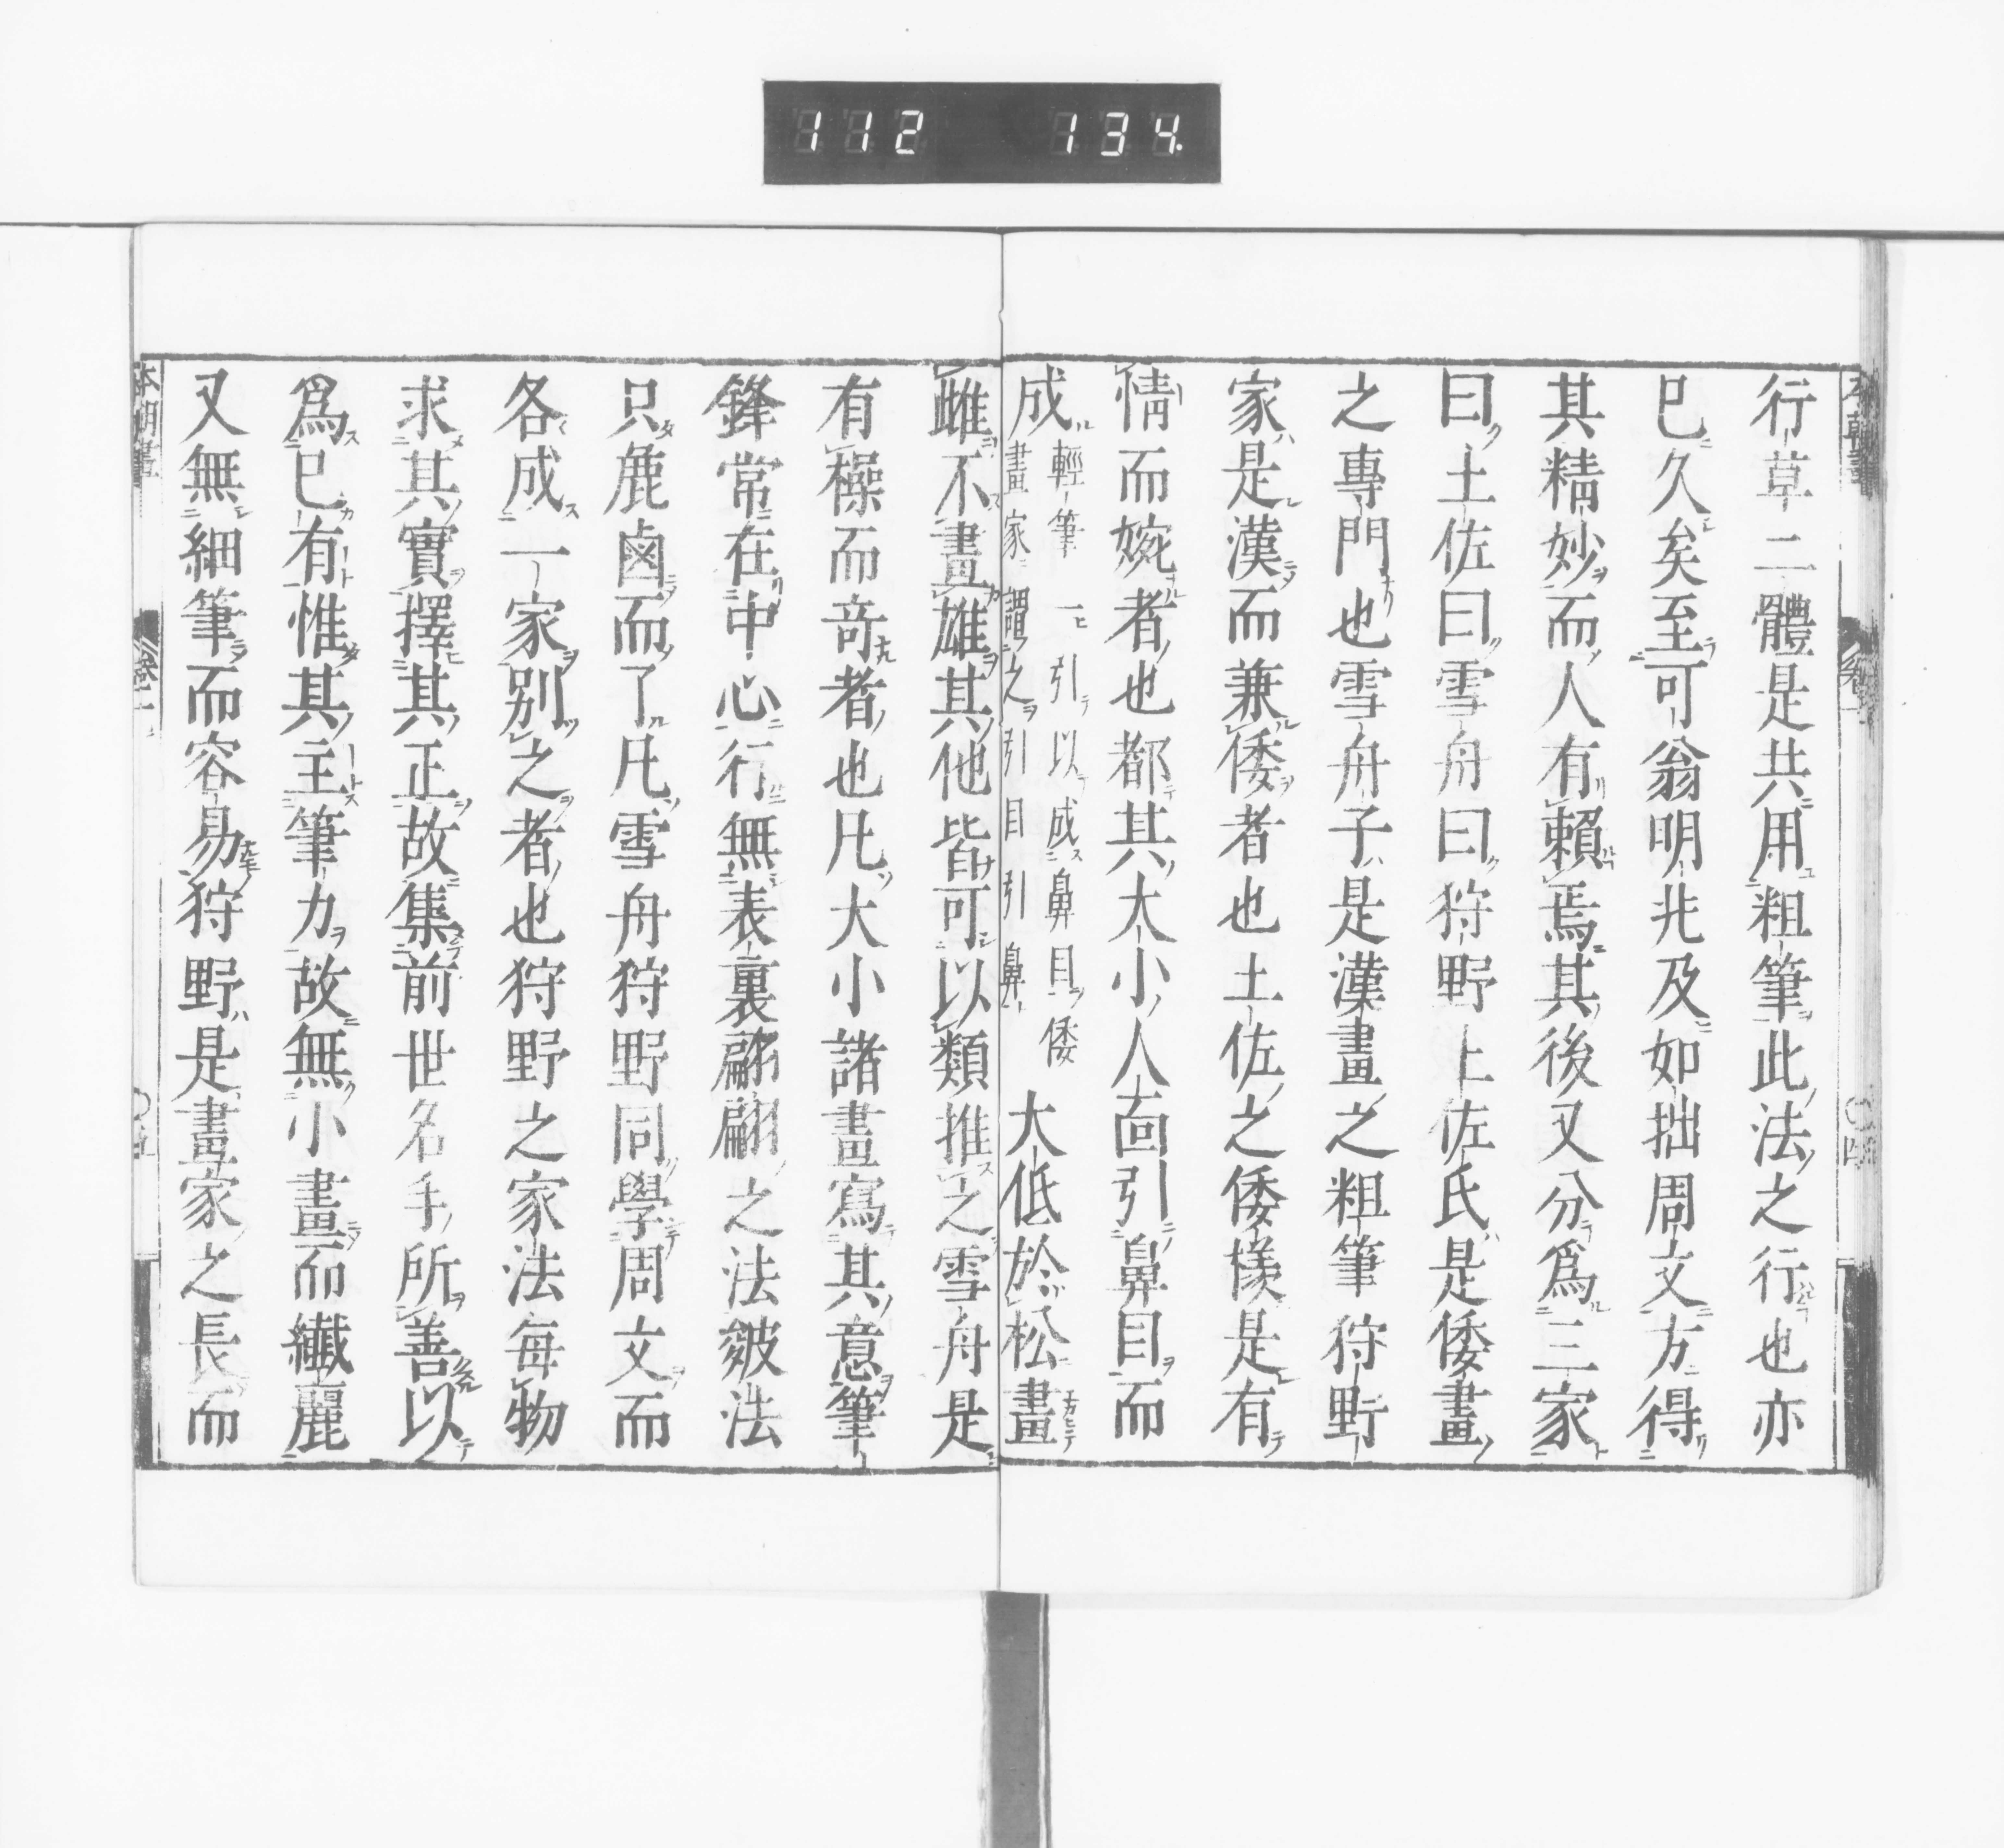 112 134.
行草二體是共用粗筆此法之行也亦
已久矣至可翁明兆及如拙周文方得
其精妙而人有賴焉其後又分為三家
曰土佐曰雪舟曰狩野上佐氏是倭畫
之專門也雪舟子是漢畫之粗筆狩野
家是漢而兼倭者也土佐之倭様是有
情而婉者也都其大小人面引鼻目而
成 輕筆一引以成鼻目倭
畫家謂之引目引鼻 大低於松畫
雌不畫雄其他皆可以類推之雪舟是
有橾而竒者也凡大小諸畫寫其意筆
鋒常在中心行無表裏翩翩之法皴法
只麁鹵而了凡雪舟狩野同學周文而
各成一家別之者也狩野之家法每物
求其實擇其正故集前世名手所善以
為已有惟其主筆力故無小畫而纎麗
又無細筆而容易狩野是畫家之長而